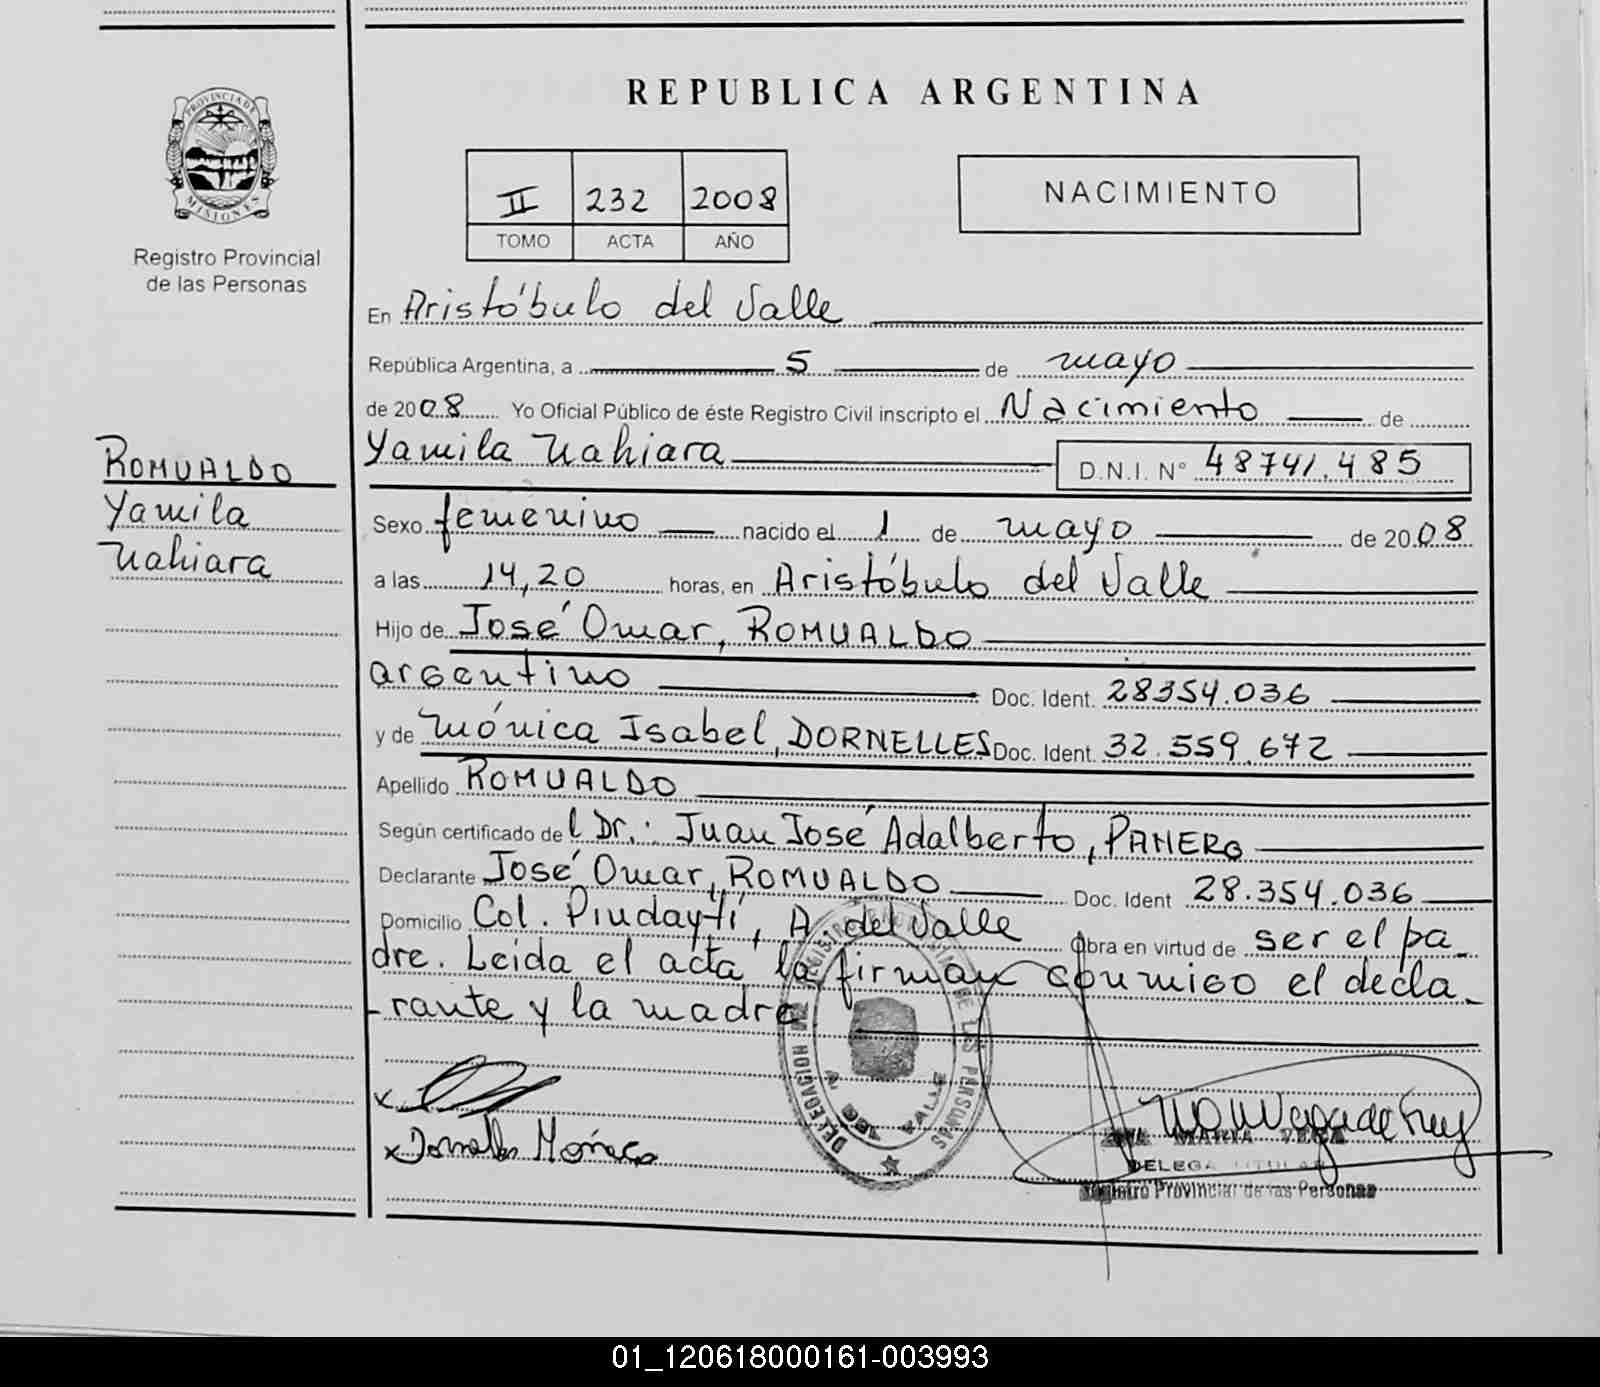 REPUBLICA ARGENTINA
PROVINCIA DE
MISIONES
Registro Provincial
de las Personas
II 232 2008
TOMO ACTA AÑO
NACIMIENTO
En Aristóbulo del Valle
República Argentina, a 5 de mayo
de 2008 Yo Oficial Público de éste Registro Civil inscripto el Nacimiento de
Yamila Nahiara D.N.I. N° 48741.485
ROMUALDO
Yamila
Nahiara
Sexo femenino nacido el 1 de mayo de 2008
a las 14,20 horas, en Aristóbulo del Valle
Hijo de José Omar, ROMUALDO
argentino Doc. Ident. 28354.036
y de Mónica Isabel, DORNELLES Doc. Ident. 32.559.672
Apellido ROMUALDO
Según certificado del Dr.: Juan José Adalberto, PANERO
Declarante José Omar, ROMUALDO Doc. Ident 28.354.036
Domicilio Col. Pindaytí, A. del Valle Obra en virtud de ser el pa_
dre. Leída el acta la firman conmigo el decla_
-rante y la madre
x
x Dornelles Mónica
DELEGACION
DE LAS PERSONAS
VALLE
MARIA VEGA
DELEGA TITULAR
Registro Provincial de las Personas
01_120618000161-003993